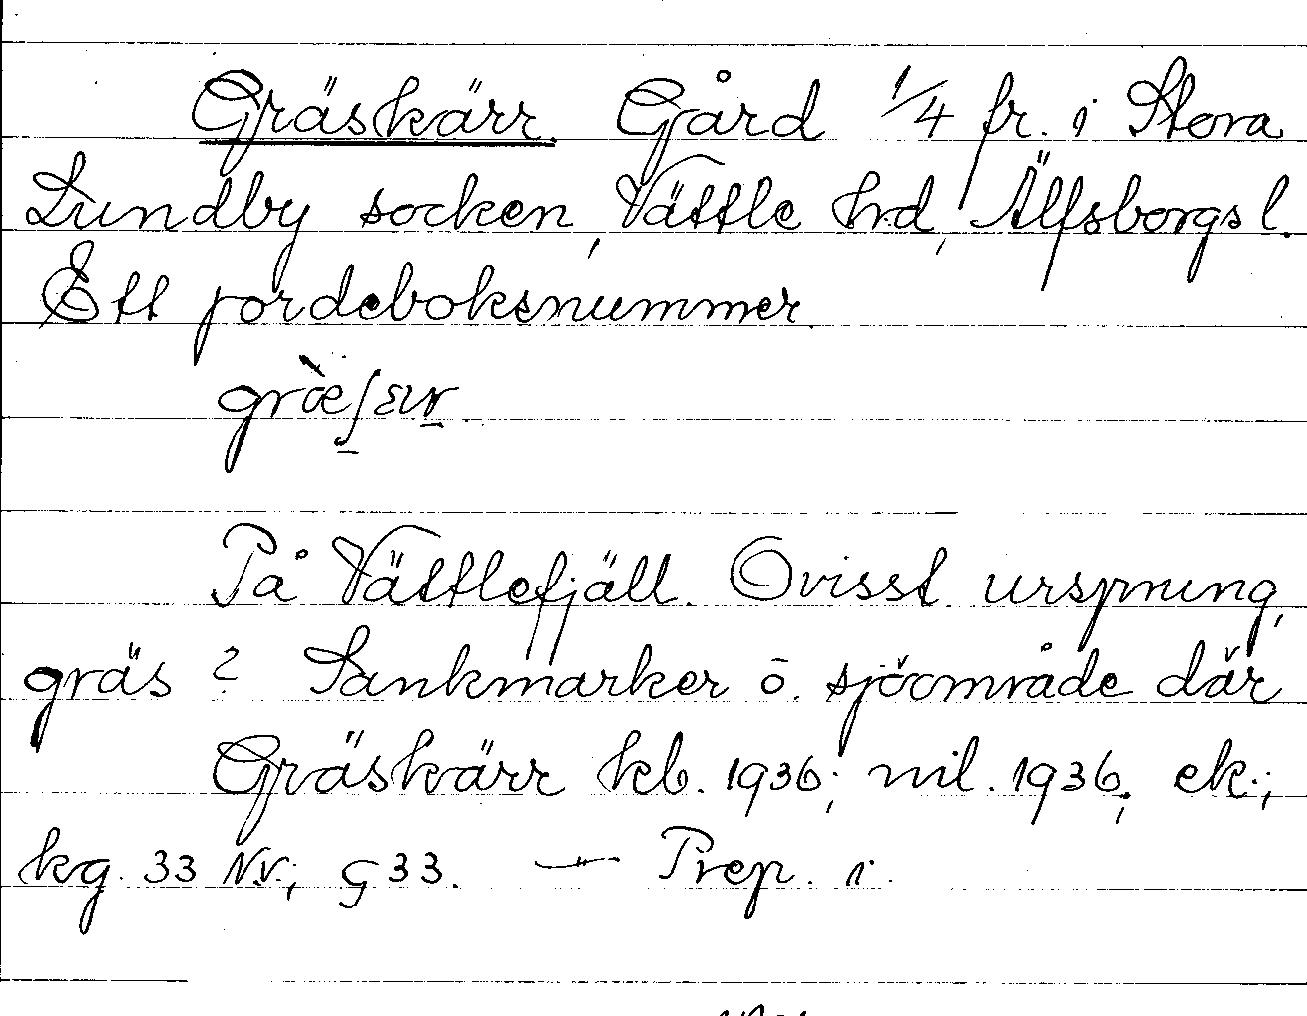 Gräskärr. Gård 1/4 fr. i Stora
Lundby socken, Vättle hrd, Älfsborgs l.
Ett jordeboksnummer.
På Vättlefjäll. Ovisst ursprung,
gräs ? Sankmarker o. sjöområde där
Gräskärr kb. 1936; mil. 1936; ek.;
kg. 33 N.V.; G 33. — Prep. i.